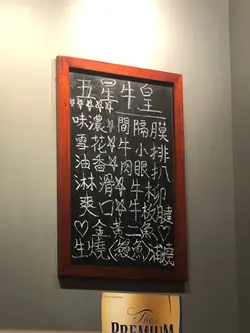 五星牛皇
☆☆☆☆☆
味濃☆間隔膜
雪花☆牛小排
油香☆肉眼扒
淋滑☆牛柳
爽口☆牛板腱
♡金黃二魚♡
生燒(鰻魚)蒲燒
The
PREMIUM